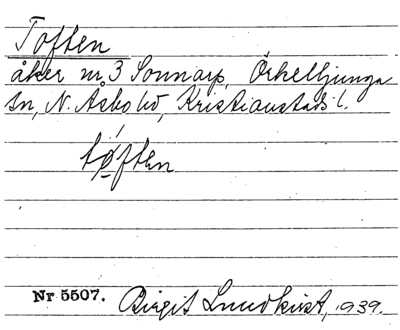 Toften
åker nr 3 Sonnarp, Örkelljunga
sn, N. Åsbo hd, Kristianstads l.
tøften
Nr 5507. Birgit Lundkvist, 1939.